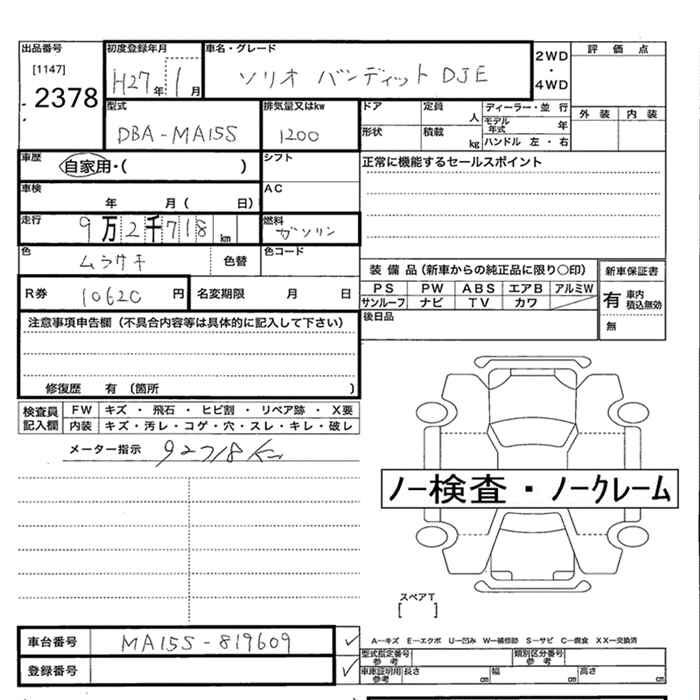 出品番号 初度登録年月 車名・グレード 2WD・4WD 評価点
[1147] 2378 H27年 1月 ソリオ バンディット DJE 外装 内装
型式 排気量又はkw ドア 定員 人 ディーラー・並行
DBA-MA15S 1200 形状 積載 kg モデル年式 年
ハンドル 左・右
車歴 自家用・( ) シフト 正常に機能するセールスポイント
車検 年 月( 日) AC
走行 9万2千718km 燃料 ガソリン
色 ムラサキ 色替 色コード
装備品(新車からの純正品に限り○印) 新車保証書
R券 10620円 名変期限 月 日 PS PW ABS エアB アルミW 有 車内積込無効
サンルーフ ナビ TV カワ 無
注意事項申告欄(不具合内容等は具体的に記入して下さい) 後日品
修復歴 有 (箇所 )
検査員記入欄 FW キズ・飛石・ヒビ割・リペア跡・X要
内装 キズ・汚レ・コゲ・穴・スレ・キレ・破レ
メーター指示 92718Km
ノー検査・ノークレーム
スペアT
[ ]
車台番号 MA15S-819609 ✓ A—キズ E—エクボ U—凹み W—補修跡 S—サビ C—腐食 XX—交換済
登録番号 ✓ 型式指定番号 参考 類別区分番号 参考
車庫証明用 参考 長さ cm 幅 cm 高さ cm